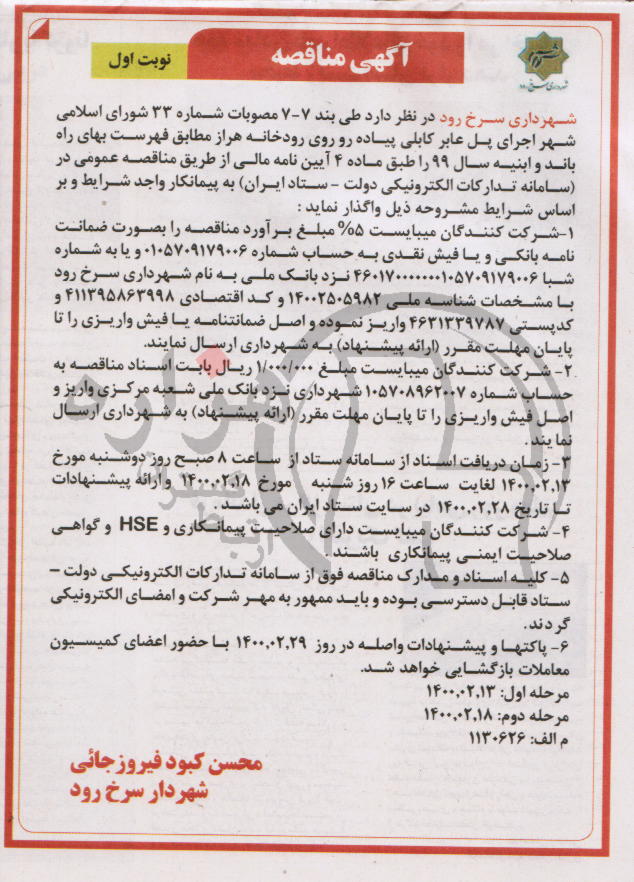 آگهی مناقصه
نوبت اول
شهرداری سرخ رود
شهرداری سرخ رود در نظر دارد طی بند ۷-۷ مصوبات شماره ۳۳ شورای اسلامی
شهر اجرای پل عابر کابلی پیاده رو روی رودخانه هراز مطابق فهرست بهای راه
باند و ابنیه سال ۹۹ را طبق ماده ۴ آیین نامه مالی از طریق مناقصه عمومی در
(سامانه تدارکات الکترونیکی دولت - ستاد ایران) به پیمانکار واجد شرایط و بر
اساس شرایط مشروحه ذیل واگذار نماید :
۱-شرکت کنندگان میبایست ۵% مبلغ برآورد مناقصه را بصورت ضمانت
نامه بانکی و یا فیش نقدی به حساب شماره ۰۱۰۵۷۰۹۱۷۹۰۰۶ و یا به شماره
شبا ۴۶۰۱۷۰۰۰۰۰۰۰۱۰۵۷۰۹۱۷۹۰۰۶ نزد بانک ملی به نام شهرداری سرخ رود
با مشخصات شناسه ملی ۱۴۰۰۲۵۰۵۹۸۲ و کد اقتصادی ۴۱۱۳۹۵۸۶۳۹۹۸ و
کدپستی ۴۶۳۱۳۳۹۷۸۷ واریز نموده و اصل ضمانتنامه یا فیش واریزی را تا
پایان مهلت مقرر (ارائه پیشنهاد) به شهرداری ارسال نمایند.
۲- شرکت کنندگان میبایست مبلغ ۱/۰۰۰/۰۰۰ ریال بابت اسناد مناقصه به
حساب شماره ۱۰۵۷۰۸۹۶۲۰۰۷ شهرداری نزد بانک ملی شعبه مرکزی واریز و
اصل فیش واریزی را تا پایان مهلت مقرر (ارائه پیشنهاد) به شهرداری ارسال
نمایند.
۳- زمان دریافت اسناد از سامانه ستاد از ساعت ۸ صبح روز دوشنبه مورخ
۱۴۰۰,۰۲,۱۳ لغایت ساعت ۱۶ روز شنبه مورخ ۱۴۰۰,۰۲,۱۸ و ارائه پیشنهادات
تا تاریخ ۱۴۰۰,۰۲,۲۸ در سایت ستاد ایران می باشد .
۴- شرکت کنندگان میبایست دارای صلاحیت پیمانکاری و HSE و گواهی
صلاحیت ایمنی پیمانکاری باشند.
۵- کلیه اسناد و مدارک مناقصه فوق از سامانه تدارکات الکترونیکی دولت -
ستاد قابل دسترسی بوده و باید ممهور به مهر شرکت و امضای الکترونیکی
گردند.
۶- پاکتها و پیشنهادات واصله در روز ۱۴۰۰,۰۲,۲۹ با حضور اعضای کمیسیون
معاملات بازگشایی خواهد شد.
مرحله اول: ۱۴۰۰,۰۲,۱۳
مرحله دوم: ۱۴۰۰,۰۲,۱۸
م الف: ۱۱۳۰۶۲۶
محسن کبود فیروزجائی
شهردار سرخ رود